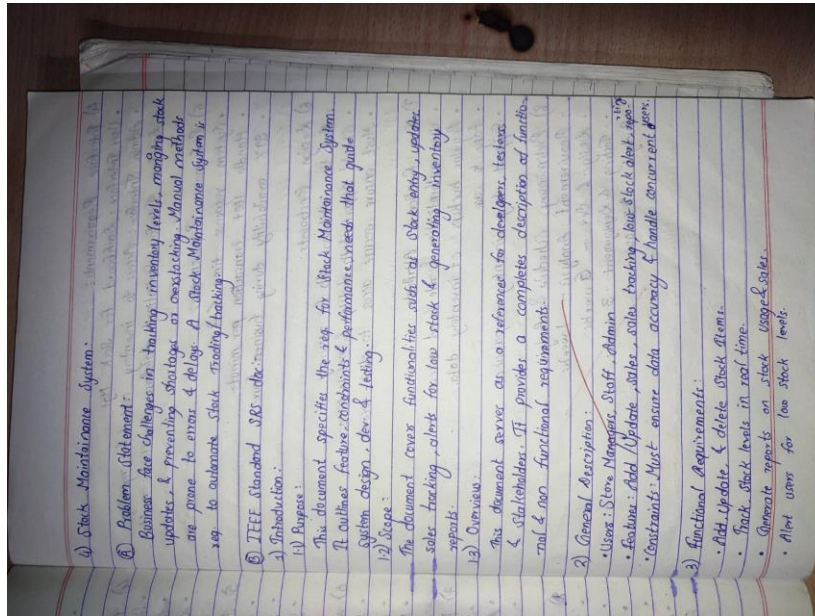 4) Stock Maintainance System:
Ⓐ Problem Statement:
Business face challenges in tracking inventory levels, manging stock
updates, & preventing shortages or overstocking. Manual methods
are prone to errors & delays. A Stock Maintainance System is
req. to automate stock Trading/tracking.
Ⓑ IEEE Standard SRS doc:
1) Introduction:
1.1) Purpose:
This document specifies the req. for Stock Maintainance System.
It outlines feature, constraints & performance needs that guide
system design, dev & testing.
1.2) Scope:
The document covers functionalities such as stock entry, updates
sales tracking, alerts for low stock & generating inventory
reports.
1.3) Overview:
This document server as a references for developers, testers
& stakeholders. It provides a completes description of functio-
nal & non functional requirements.
2) General Description:
• Users: Store Managers, Staff, Admin
• Features: Add/Update, sales, sales tracking, low stock alert, repo-
ting
• Constraints: Must ensure data accuracy & handle concurrent users.
3) Functional Requirements:
• Add, Update, & delete Stock Items.
• Track Stock levels in real time.
• Generate reports on stock usage & sales.
• Alert users for low stock levels.